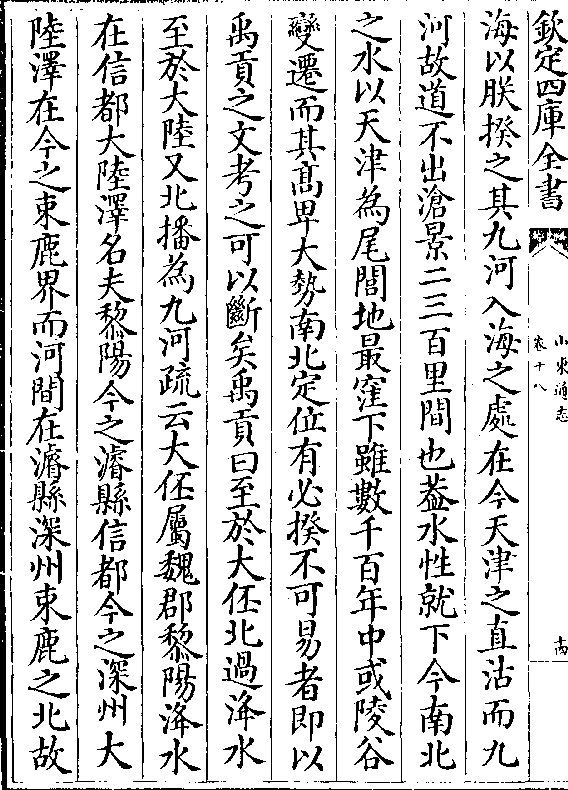 欽定四庫全書
山東通志
卷十八
十四
海以朕揆之其九河入海之處在今天津之直沽而九
河故道不出滄景二三百里間也葢水性就下今南北
之水以天津為尾閭地最窪下雖數千百年中或陵谷
變遷而其髙卑大勢南北定位有必揆不可易者即以
禹貢之文考之可以斷矣禹貢曰至於大伾北過洚水
至於大陸又北播為九河疏云大伾屬魏郡黎陽洚水
在信都大陸澤名夫黎陽今之濬縣信都今之深州大
陸澤在今之束鹿界而河間在濬縣深州束鹿之北故